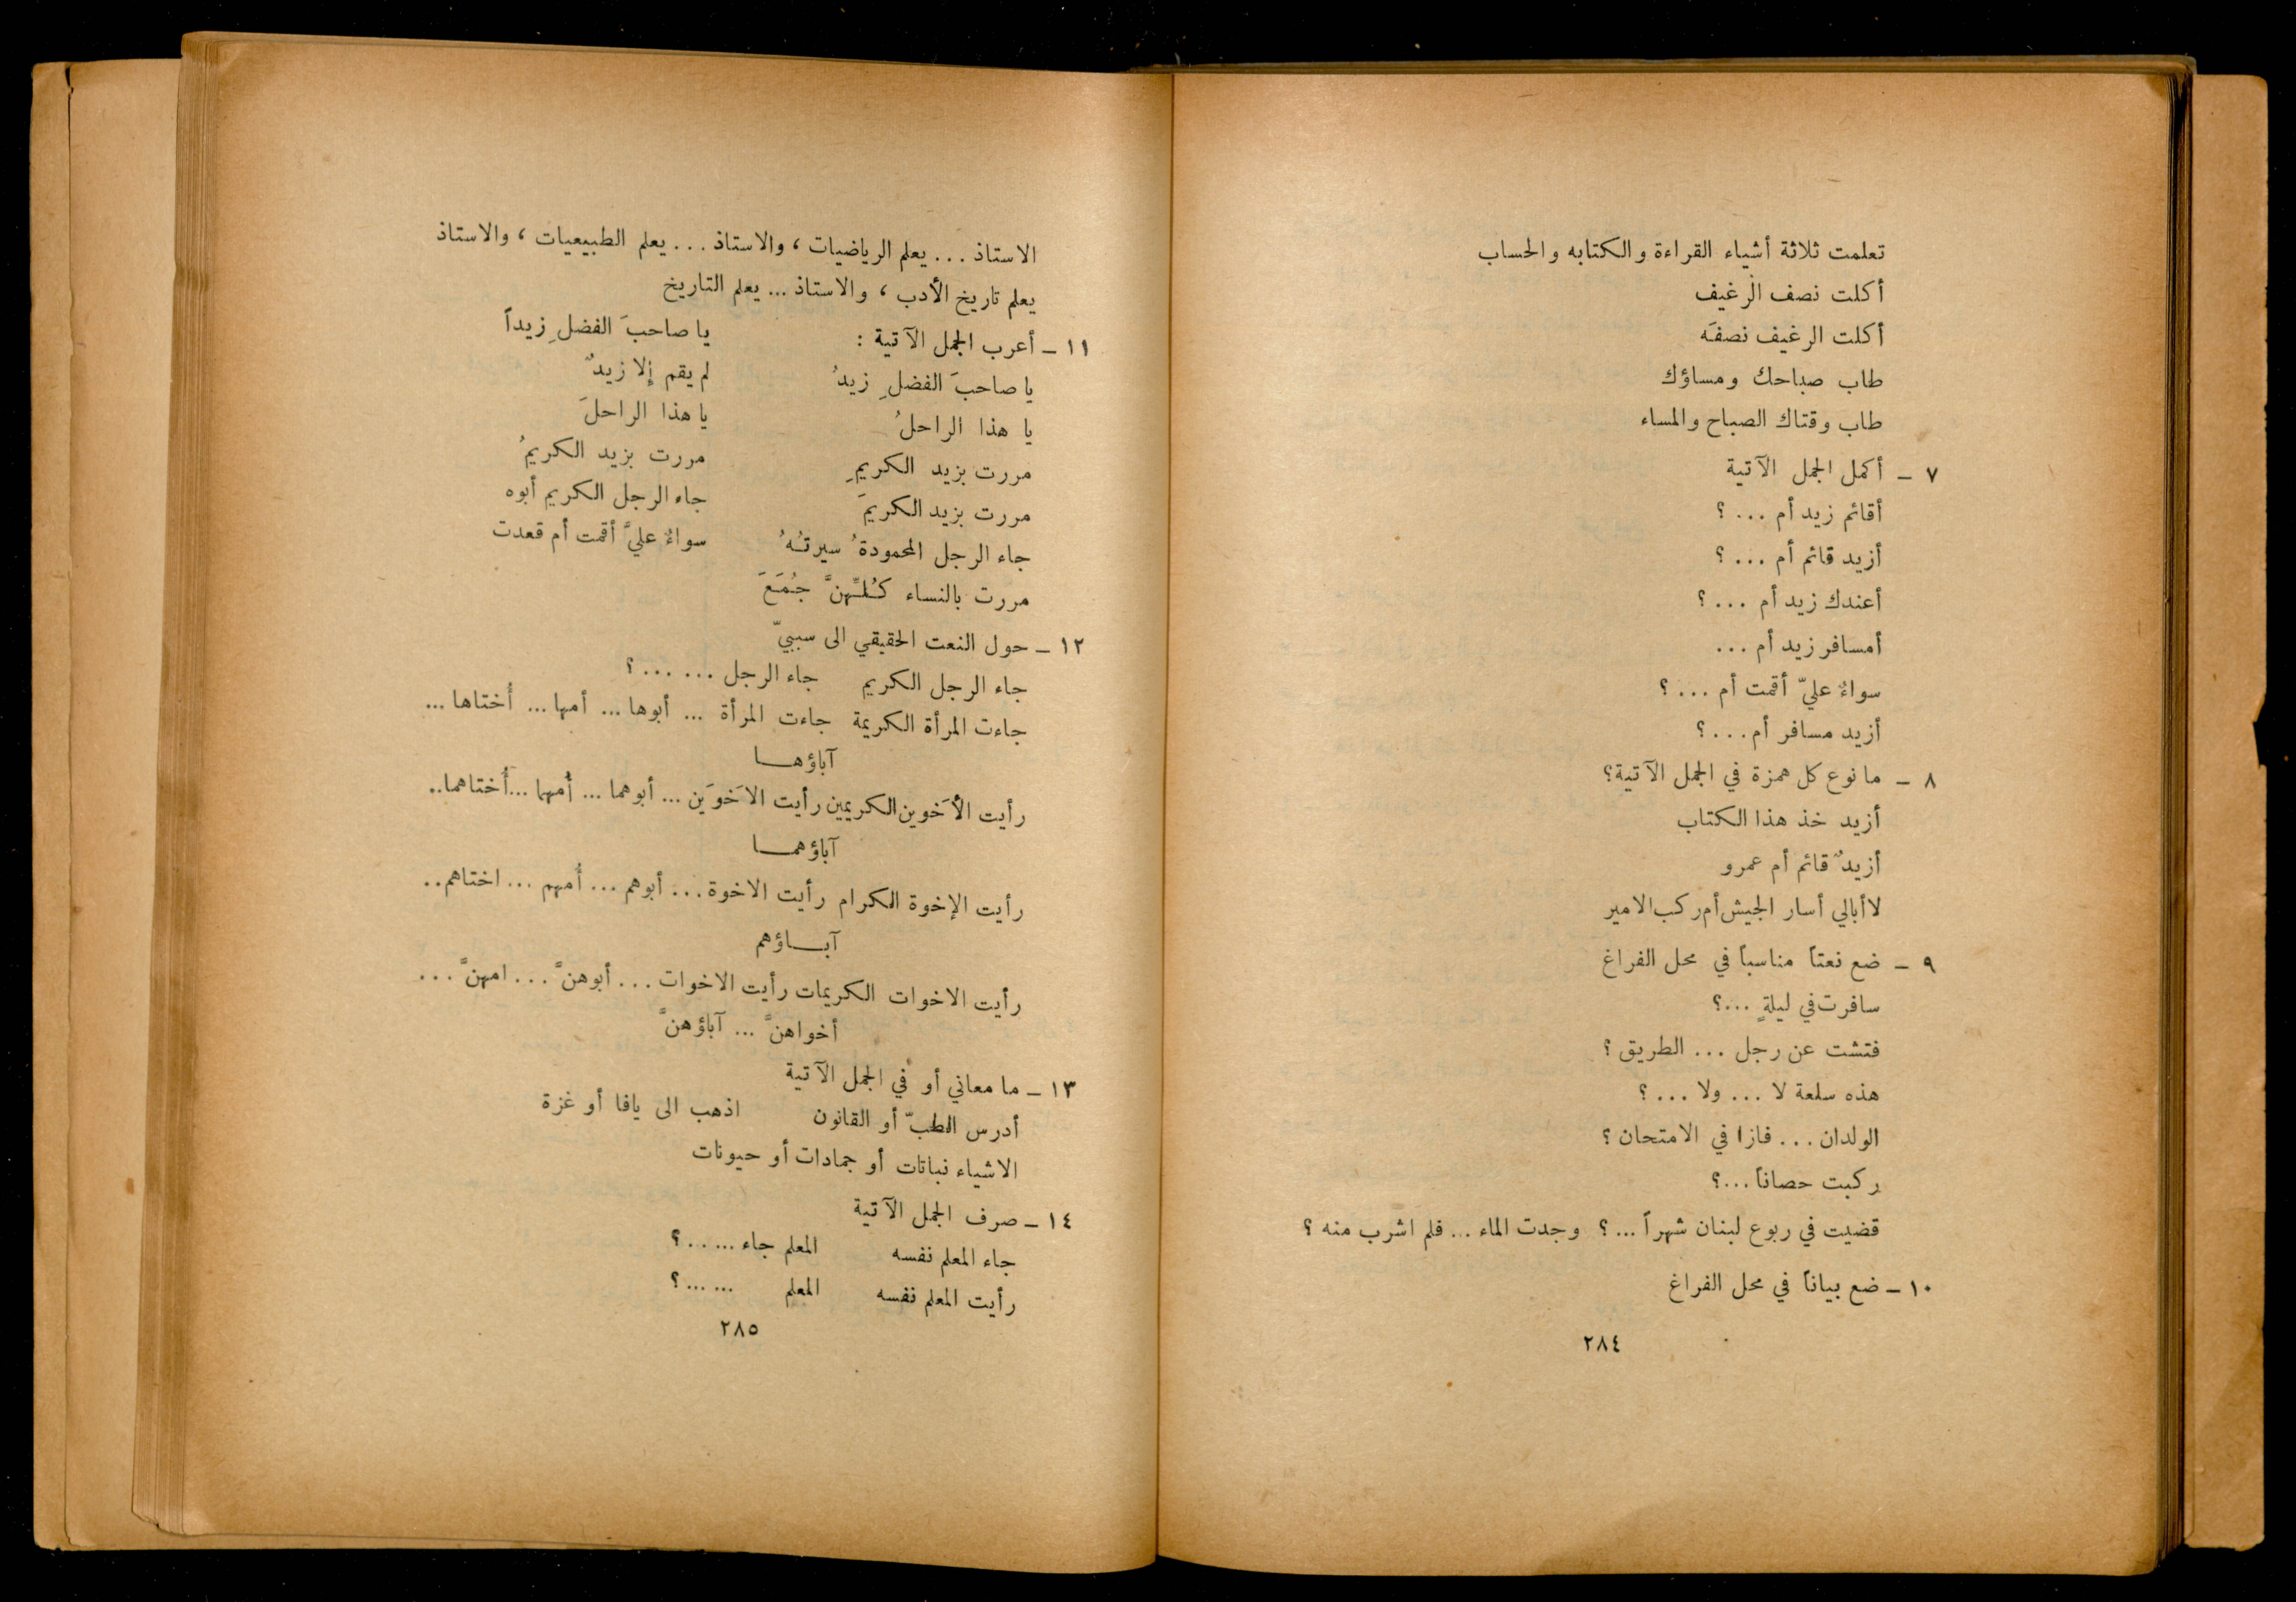 تعلمت ثلاثة أشياء القراءة والكتابه والحساب
أكلت نصف الرغيف
أكلت الرغيف نصفَه
طاب صباحك ومساؤك
طاب وقتاك الصباح والمساء
٧ – أكمل الجمل الآتية
أقائم زيد أم ... ؟
أزيد قائم أم ... ؟
أعندك زيد أم ... ؟
أمسافر زيد أم ...
سواءٌ عليّ أقمت أم ... ؟
أزيد مسافر أم ... ؟
٨ – ما نوع كل همزة في الجمل الآتية؟
أزيد خذ هذا الكتاب
أزيدٌ قائم أم عمرو
لا أبالي أسار الجيش أم ركب الامير
٩ – ضع نعتاً مناسباً في محل الفراغ
سافرت في ليلةٍ ...؟
فتشت عن رجل ... الطريق ؟
هذه سلعة لا ... ولا ... ؟
الولدان ... فازا في الامتحان ؟
ركبت حصاناً ...؟
قضيت في ربوع لبنان شهراً ... ؟ وجدت الماء ... فلم اشرب منه ؟
١٠ – ضع بياناً في محل الفراغ
٢٨٤
الاستاذ ... يعلم الرياضيات ، والاستاذ ... يعلم الطبيعيات ، والاستاذ
يعلم تاريخ الأدب ، والاستاذ ... يعلم التاريخ
١١ – أعرب الجمل الآتية : يا صاحبَ الفضلِ زيداً
يا صاحبَ الفضلِ زيدُ لم يقم إلا زيدٌ
يا هذا الراحلُ يا هذا الراحلَ
مررت بزيد الكريمِ مررت بزيد الكريمُ
مررت بزيد الكريمَ جاء الرجل الكريم أبوه
جاء الرجل المحمودةُ سيرتُهُ سواءٌ عليَّ أقمت أم قعدت
مررت بالنساء كُلِّهنَّ جُمَعَ
١٢ – حول النعت الحقيقي الى سببيّ
جاء الرجل الكريم جاء الرجل ... ... ؟
جاءت المرأة الكريمة جاءت المرأة ... أبوها ... أمها ... أُختاها ...
آباؤهـا
رأيت الأَخوين الكريمين رأيت الاَخوَين ... أبوهما ... أُمهما ... أُختاهما ..
آباؤهمـا
رأيت الإخوة الكرام رأيت الاخوة ... أبوهم ... أُمهم ... اختاهم ..
آبـاؤهم
رأيت الاخوات الكريمات رأيت الاخوات ... أبوهنَّ ... امهنَّ ...
أخواهنَّ ... آباؤهنَّ
١٣ – ما معاني أو في الجمل الآتية
أدرس الطبّ أو القانون اذهب الى يافا أو غزة
الاشياء نباتات أو جمادات أو حيونات
١٤ – صرف الجمل الآتية
جاء المعلم نفسه المعلم جاء ... ... ؟
رأيت المعلم نفسه المعلم ... ... ؟
٢٨٥